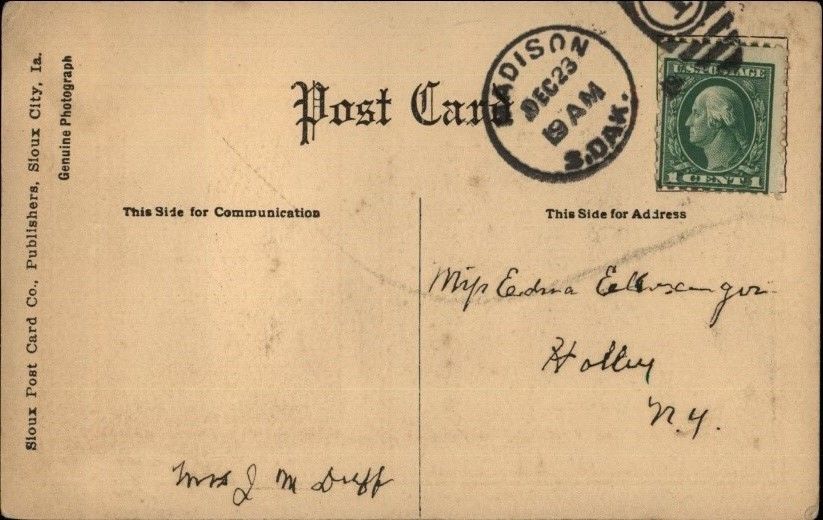 Sioux Post Card Co., Publishers, Sioux City, Ia.
Genuine Photograph
Post Card
MADISON
DEC 23
9 AM
S. DAK.
1
U.S. POSTAGE
1 CENT 1
This Side for Communication
This Side for Address
Miss Edna
Holley
N.Y.
Mrs J M Duff